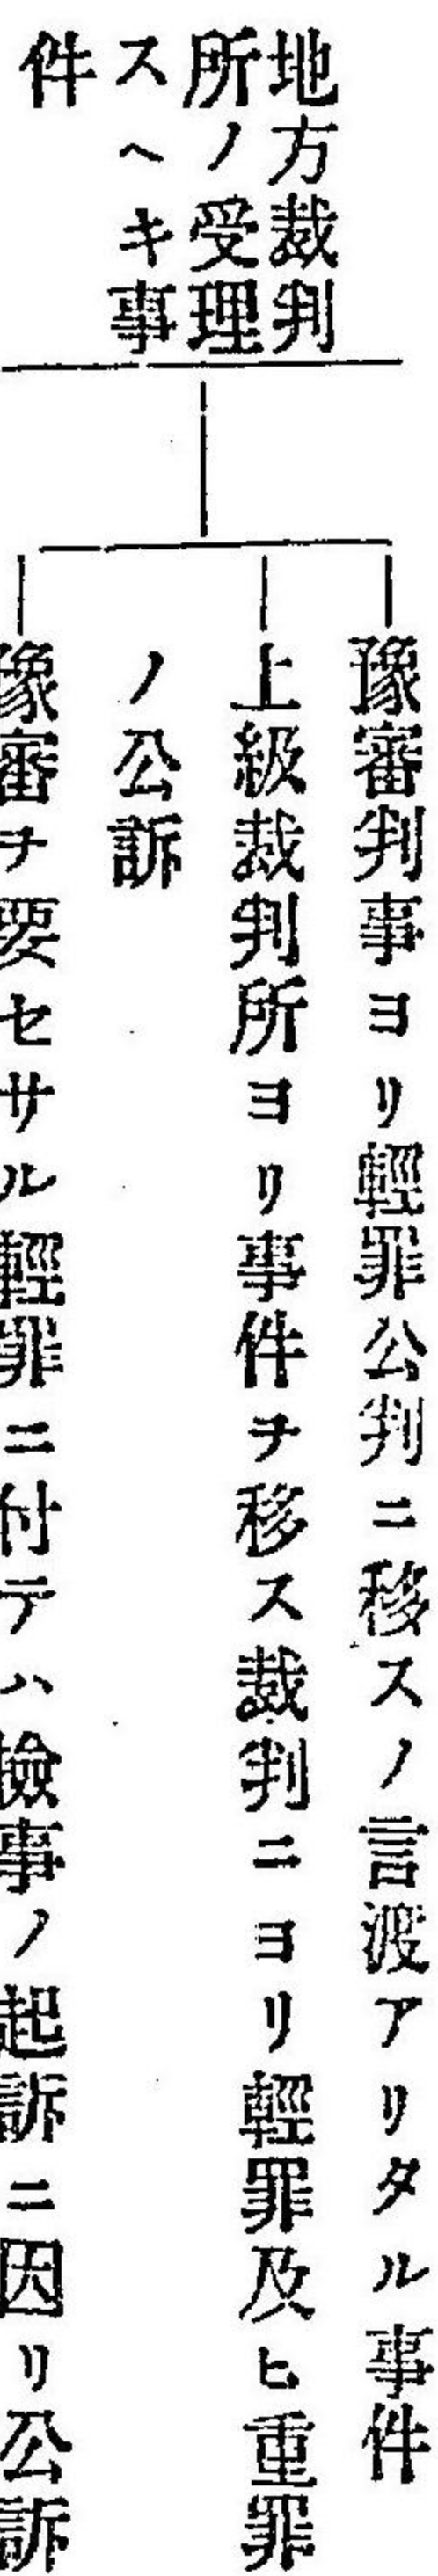 地方裁判
所ノ受理
スヘキ事
件
豫審判事ヨリ輕罪公判ニ移スノ言渡アリタル事件
上級裁判所ヨリ事件ヲ移ス裁判ニヨリ輕罪及ヒ重罪
ノ公訴
豫審ヲ要セサル輕罪ニ付テハ檢事ノ起訴ニ因リ公訴